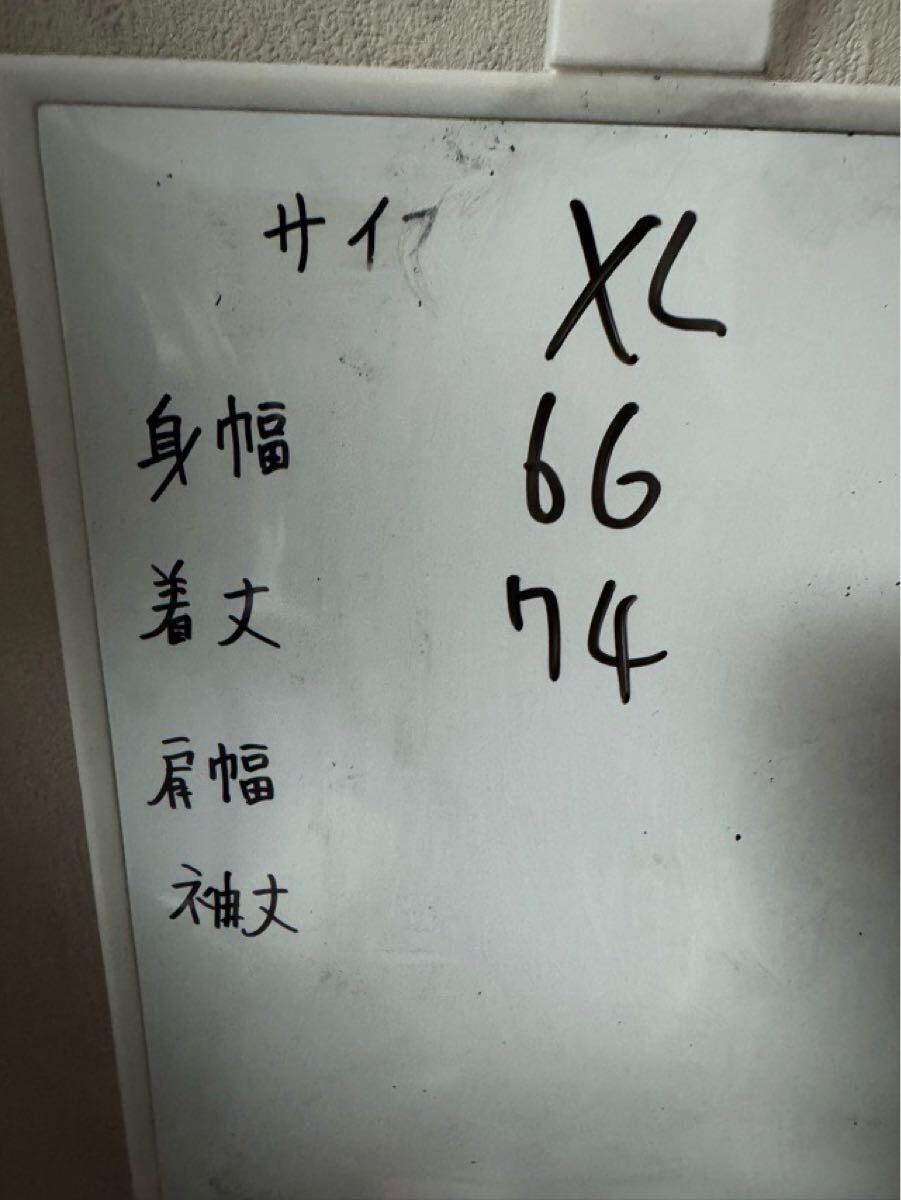 サイズ XL
身幅 66
着丈 74
肩幅
袖丈